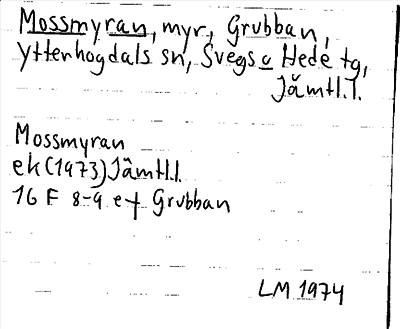 Mossmyran, myr, Grubban,
Ytterhogdals sn, Svegs o Hede tg,
Jämtl.l.
Mossmyran
ek (1973) Jämtl.l.
16 F 8-9 ef Grubban
LM 1974